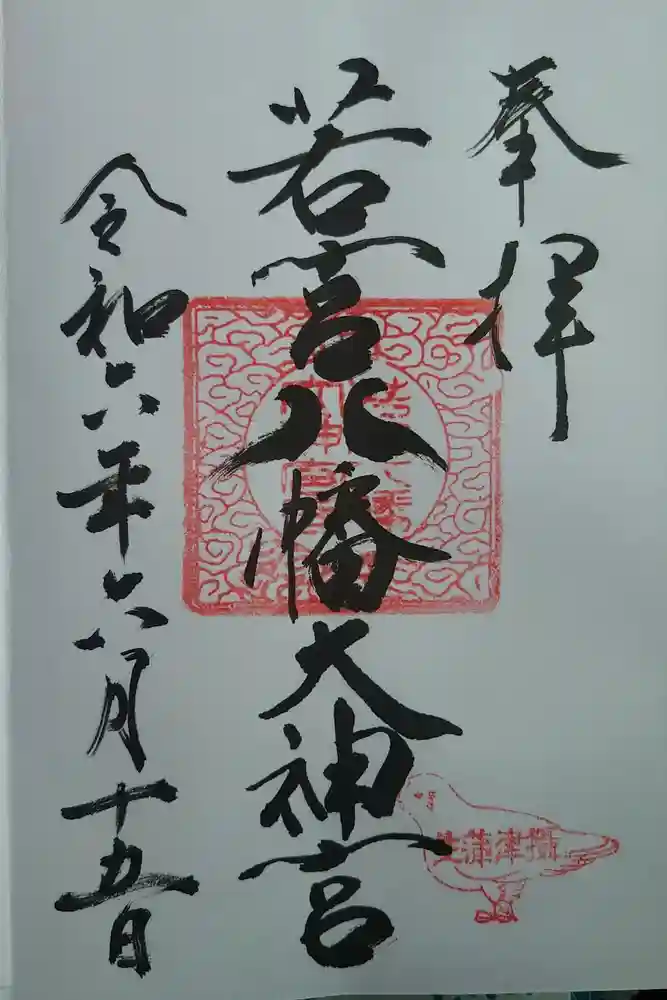 奉拝
若宮八幡大神宮
令和六年六月十五日
摂津蒲生